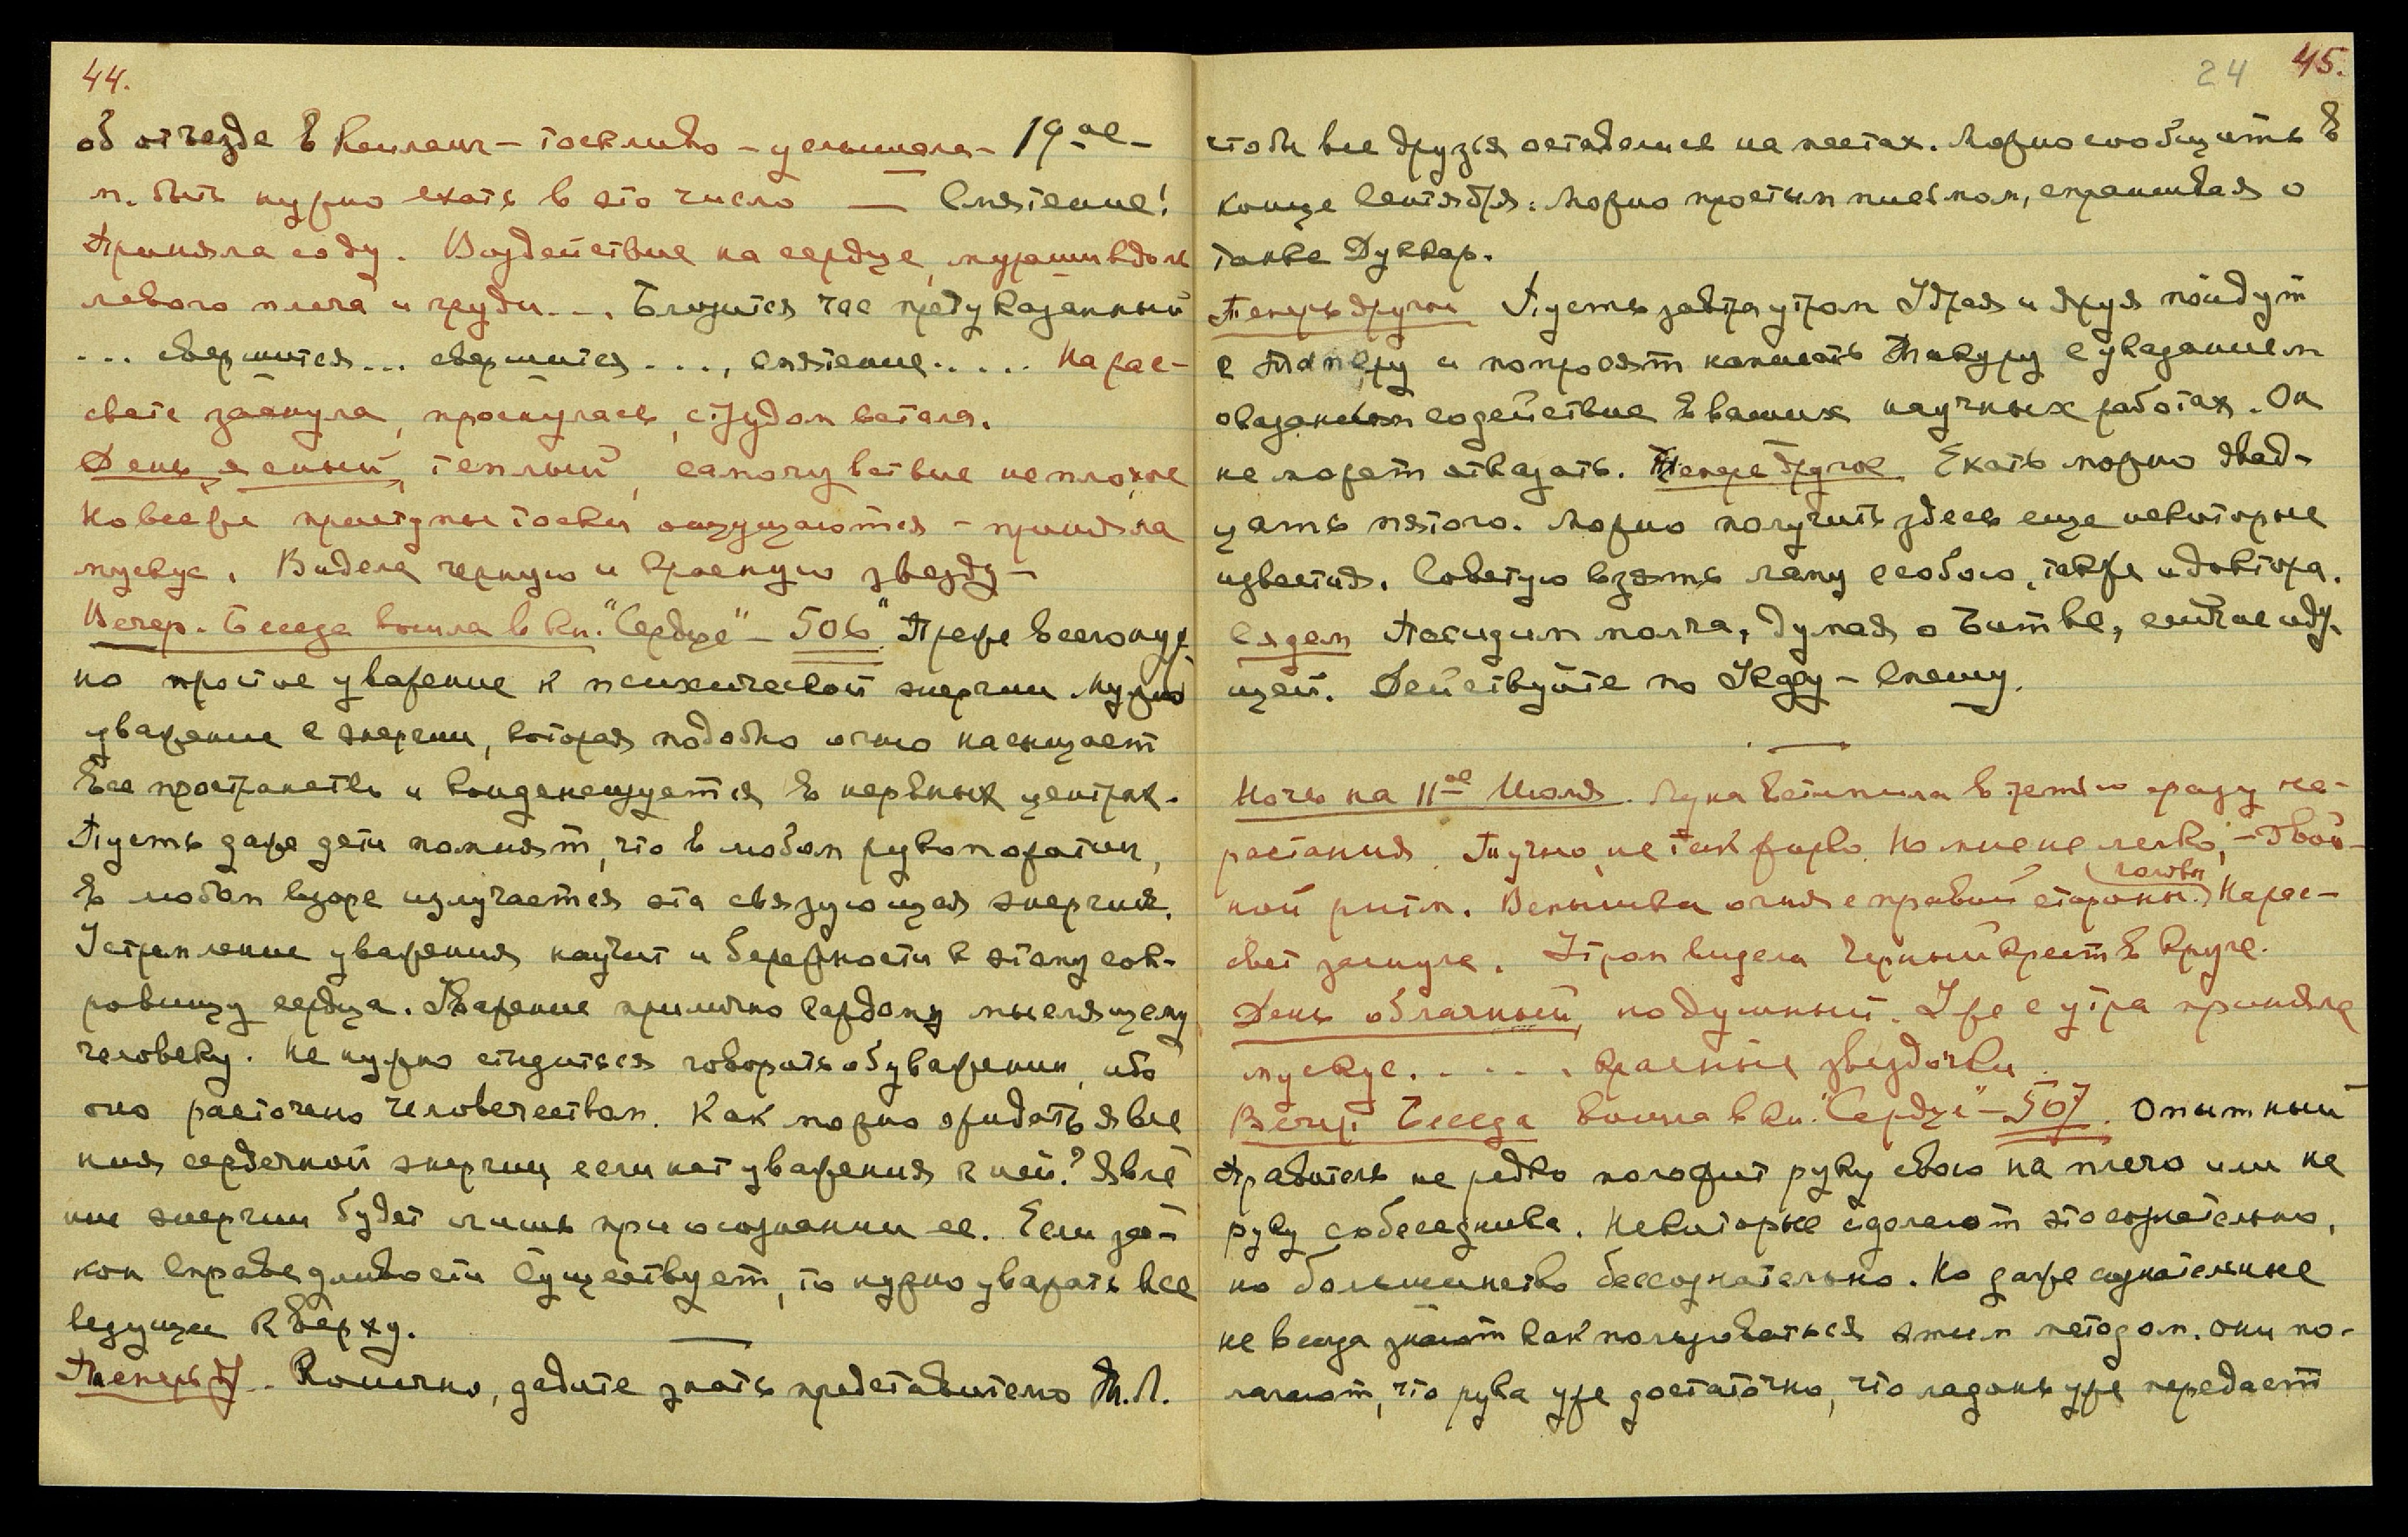 44.
об отъезде в Кейланг – тоскливо – услышала – 19-ое –
м. быть нужно ехать в это число — Смятение!
Приняла соду. Воздействие на сердце, мурашки вдоль
левого плеча и груди... Близится час предуказанный
... свершится... свершится..., смятение..... На рас-
свете заснула, проснулась, с трудом встала.
День ясный, теплый, самочувствие не плохое
Но все же приступы тоски ощущаются – приняла
мускус. Видела черную и красную звезду –
Вечер. Беседа вошла в кн. "Сердце" – 506" Прежде всего нуж
но простое уважение к психической энергии. Нужно
уважение к энергии, которая подобно огню насыщает
все пространство и конденсируется в нервных центрах.
Пусть даже дети помнят, что в любом рукопожатии,
в любом взоре излучается эта связующая энергия.
Устремление уважения научит и бережности к этому сок-
ровищу сердца. Уважение прилично каждому мыслящему
человеку. Не нужно стыдиться говорить об уважении, ибо
оно расточено человечеством. Как можно ожидать явле
ния сердечной энергии, если нет уважения к ней? Явле
ние энергии будет лишь при осознании ее. Если за-
кон справедливости существует, то нужно уважать все
ведущее кверху.
Теперь др. Конечно, дадите знать представителю Т.Л.
24 45.
чтобы все друзья оставались на местах. Можно сообщить в
конце Сентября. Можно простым письмом, спрашивая о
танке Дуккар.
Теперь другое Пусть завтра утром Удрая и Яруя пойдут
к Тамперу и попросят написать Такуру с указанием
оказания содействие в ваших научных работах. Он
не может отказать. Теперь другое Ехать можно двад-
цать пятого. Можно получить здесь еще некоторые
известия. Советую взять ламу с собою, также и доктора.
Сядем Посидим молча, думая о Битве, сейчас иду-
щей. Действуйте по Указу – Спешу.
Ночь на 11-ое Июля. Луна вступила в третью фазу на-
растания. Душно, не так жарко. Но мне не легко, – двой-
ной ритм. Вспышки огня с правой стороны
головы
. На рас-
свет заснула. Утром видела черный крест в круге.
День облачный, но душный. Уже с утра приняла
мускус..... красные звездочки.
Вечер. Беседа вошла в кн. "Сердце" – 507. Опытный
Правитель не редко положит руку свою на плечо или на
руку собеседника. Некоторые сделают это сознательно,
но большинство бессознательно. Но даже сознательные
не всегда знают как пользоваться этим методом. Они по-
лагают, что рука уже достаточно, что ладонь уже передает